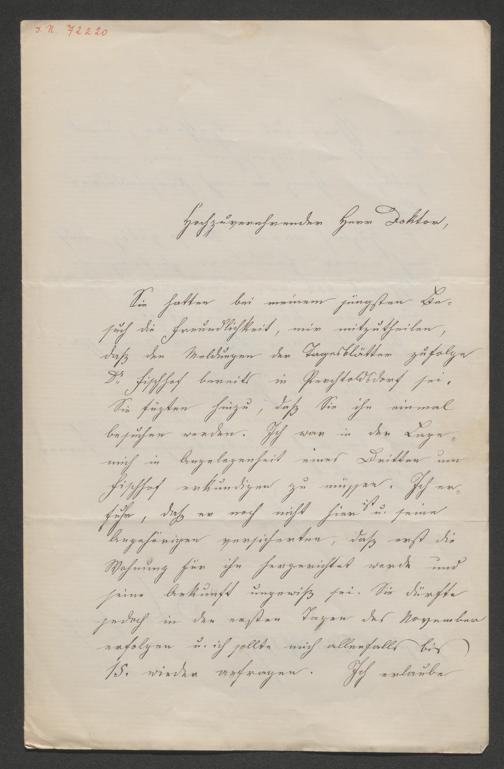 J. N. 72220
Hochzuverehrender Herr Doktor,
Sie hatten bei meinem jüngsten Be-
such die Freundlichkeit, mir mitzutheilen,
daß den Meldungen der Tagesblätter zufolge
Dr Fischhof bereits in Perchtoldsdorf sei.
Sie fügten hinzu, daß Sie ihn einmal
besuchen werden. Ich war in der Lage,
mich in Angelegenheit eines Dritten um
Fischhof erkundigen zu müssen. Ich er-
fuhr, daß er noch nicht hier ist u. seine
Angehörigen versicherten, daß erst die
Wohnung für ihn hergerichtet werde und
seine Ankunft ungewiß sei. Sie dürfte
jedoch in den ersten Tagen des November
erfolgen u. ich sollte mich allenfalls bis
15. wieder anfragen. Ich erlaube